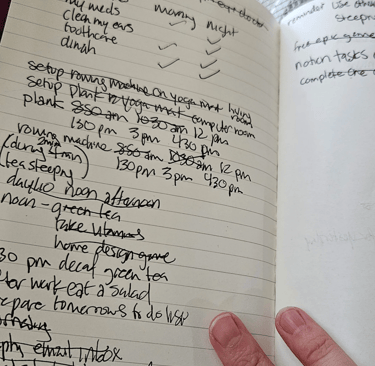 my meds morning night
clean my ears
toothcare
dinah
setup rowing machine on yoga mat living room
setup plank & yoga mat computer room
plank 850 am 1030 am 12 pm
130 pm 3 pm 430 pm
rowing machine 850 am 1030 am 12 pm
130 pm 3 pm 430 pm
tea steepng
daylio noon afternoon
noon - green tea
take vitamins
home design game
30 pm decaf green tea
work eat a salad
tomorrows to do list
email inbox
reminder use
steepng
free epic game
notion tasks
complete one